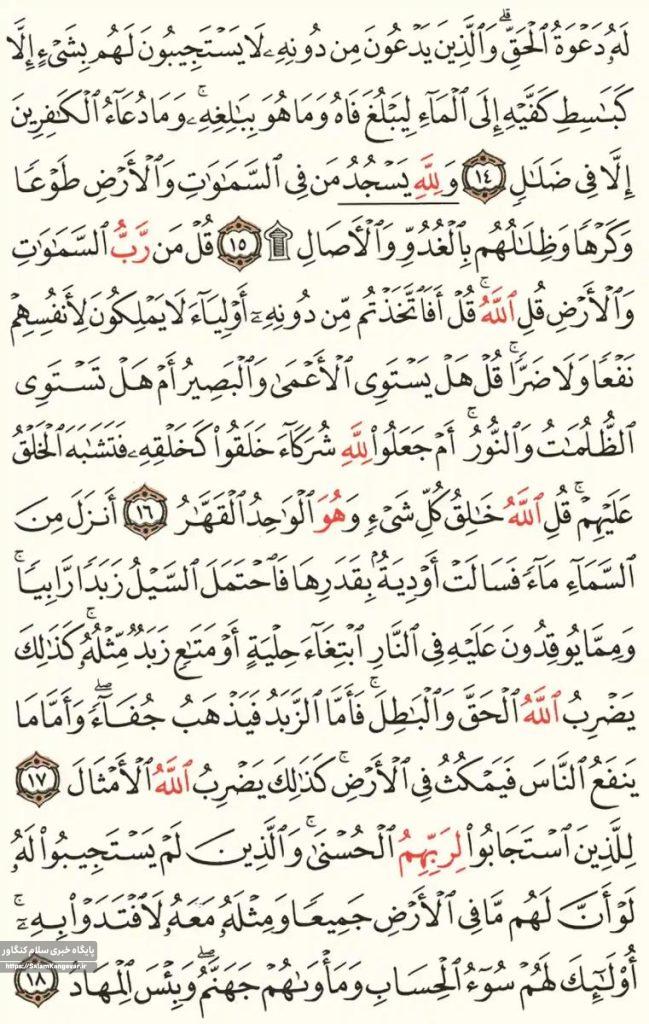 لَهُۥ دَعۡوَةُ ٱلۡحَقِّۚ وَٱلَّذِينَ يَدۡعُونَ مِن دُونِهِۦ لَا يَسۡتَجِيبُونَ لَهُم بِشَيۡءٍ إِلَّا
كَبَٰسِطِ كَفَّيۡهِ إِلَى ٱلۡمَآءِ لِيَبۡلُغَ فَاهُ وَمَا هُوَ بِبَٰلِغِهِۦۚ وَمَا دُعَآءُ ٱلۡكَٰفِرِينَ
إِلَّا فِي ضَلَٰلٖ ١٤ وَلِلَّهِ يَسۡجُدُۤ مَن فِي ٱلسَّمَٰوَٰتِ وَٱلۡأَرۡضِ طَوۡعٗا
وَكَرۡهٗا وَظِلَٰلُهُم بِٱلۡغُدُوِّ وَٱلۡأٓصَالِ ۩ ١٥ قُلۡ مَن رَّبُّ ٱلسَّمَٰوَٰتِ
وَٱلۡأَرۡضِ قُلِ ٱللَّهُۚ قُلۡ أَفَٱتَّخَذۡتُم مِّن دُونِهِۦٓ أَوۡلِيَآءَ لَا يَمۡلِكُونَ لِأَنفُسِهِمۡ
نَفۡعٗا وَلَا ضَرّٗاۚ قُلۡ هَلۡ يَسۡتَوِي ٱلۡأَعۡمَىٰ وَٱلۡبَصِيرُ أَمۡ هَلۡ تَسۡتَوِي
ٱلظُّلُمَٰتُ وَٱلنُّورُۗ أَمۡ جَعَلُواْ لِلَّهِ شُرَكَآءَ خَلَقُواْ كَخَلۡقِهِۦ فَتَشَٰبَهَ ٱلۡخَلۡقُ
عَلَيۡهِمۡۚ قُلِ ٱللَّهُ خَٰلِقُ كُلِّ شَيۡءٖ وَهُوَ ٱلۡوَٰحِدُ ٱلۡقَهَّٰرُ ١٦ أَنزَلَ مِنَ
ٱلسَّمَآءِ مَآءٗ فَسَالَتۡ أَوۡدِيَةُۢ بِقَدَرِهَا فَٱحۡتَمَلَ ٱلسَّيۡلُ زَبَدٗا رَّابِيٗاۖ
وَمِمَّا يُوقِدُونَ عَلَيۡهِ فِي ٱلنَّارِ ٱبۡتِغَآءَ حِلۡيَةٍ أَوۡ مَتَٰعٖ زَبَدٞ مِّثۡلُهُۥۚ كَذَٰلِكَ
يَضۡرِبُ ٱللَّهُ ٱلۡحَقَّ وَٱلۡبَٰطِلَۚ فَأَمَّا ٱلزَّبَدُ فَيَذۡهَبُ جُفَآءٗۖ وَأَمَّا مَا
يَنفَعُ ٱلنَّاسَ فَيَمۡكُثُ فِي ٱلۡأَرۡضِۚ كَذَٰلِكَ يَضۡرِبُ ٱللَّهُ ٱلۡأَمۡثَالَ ١٧
لِلَّذِينَ ٱسۡتَجَابُواْ لِرَبِّهِمُ ٱلۡحُسۡنَىٰۚ وَٱلَّذِينَ لَمۡ يَسۡتَجِيبُواْ لَهُۥ
لَوۡ أَنَّ لَهُم مَّا فِي ٱلۡأَرۡضِ جَمِيعٗا وَمِثۡلَهُۥ مَعَهُۥ لَٱفۡتَدَوۡاْ بِهِۦٓۚ
أُوْلَٰٓئِكَ لَهُمۡ سُوٓءُ ٱلۡحِسَابِ وَمَأۡوَىٰهُمۡ جَهَنَّمُۖ وَبِئۡسَ ٱلۡمِهَادُ ١٨
پایگاه خبری سلام کنگاور
https://SalamKangavar.ir